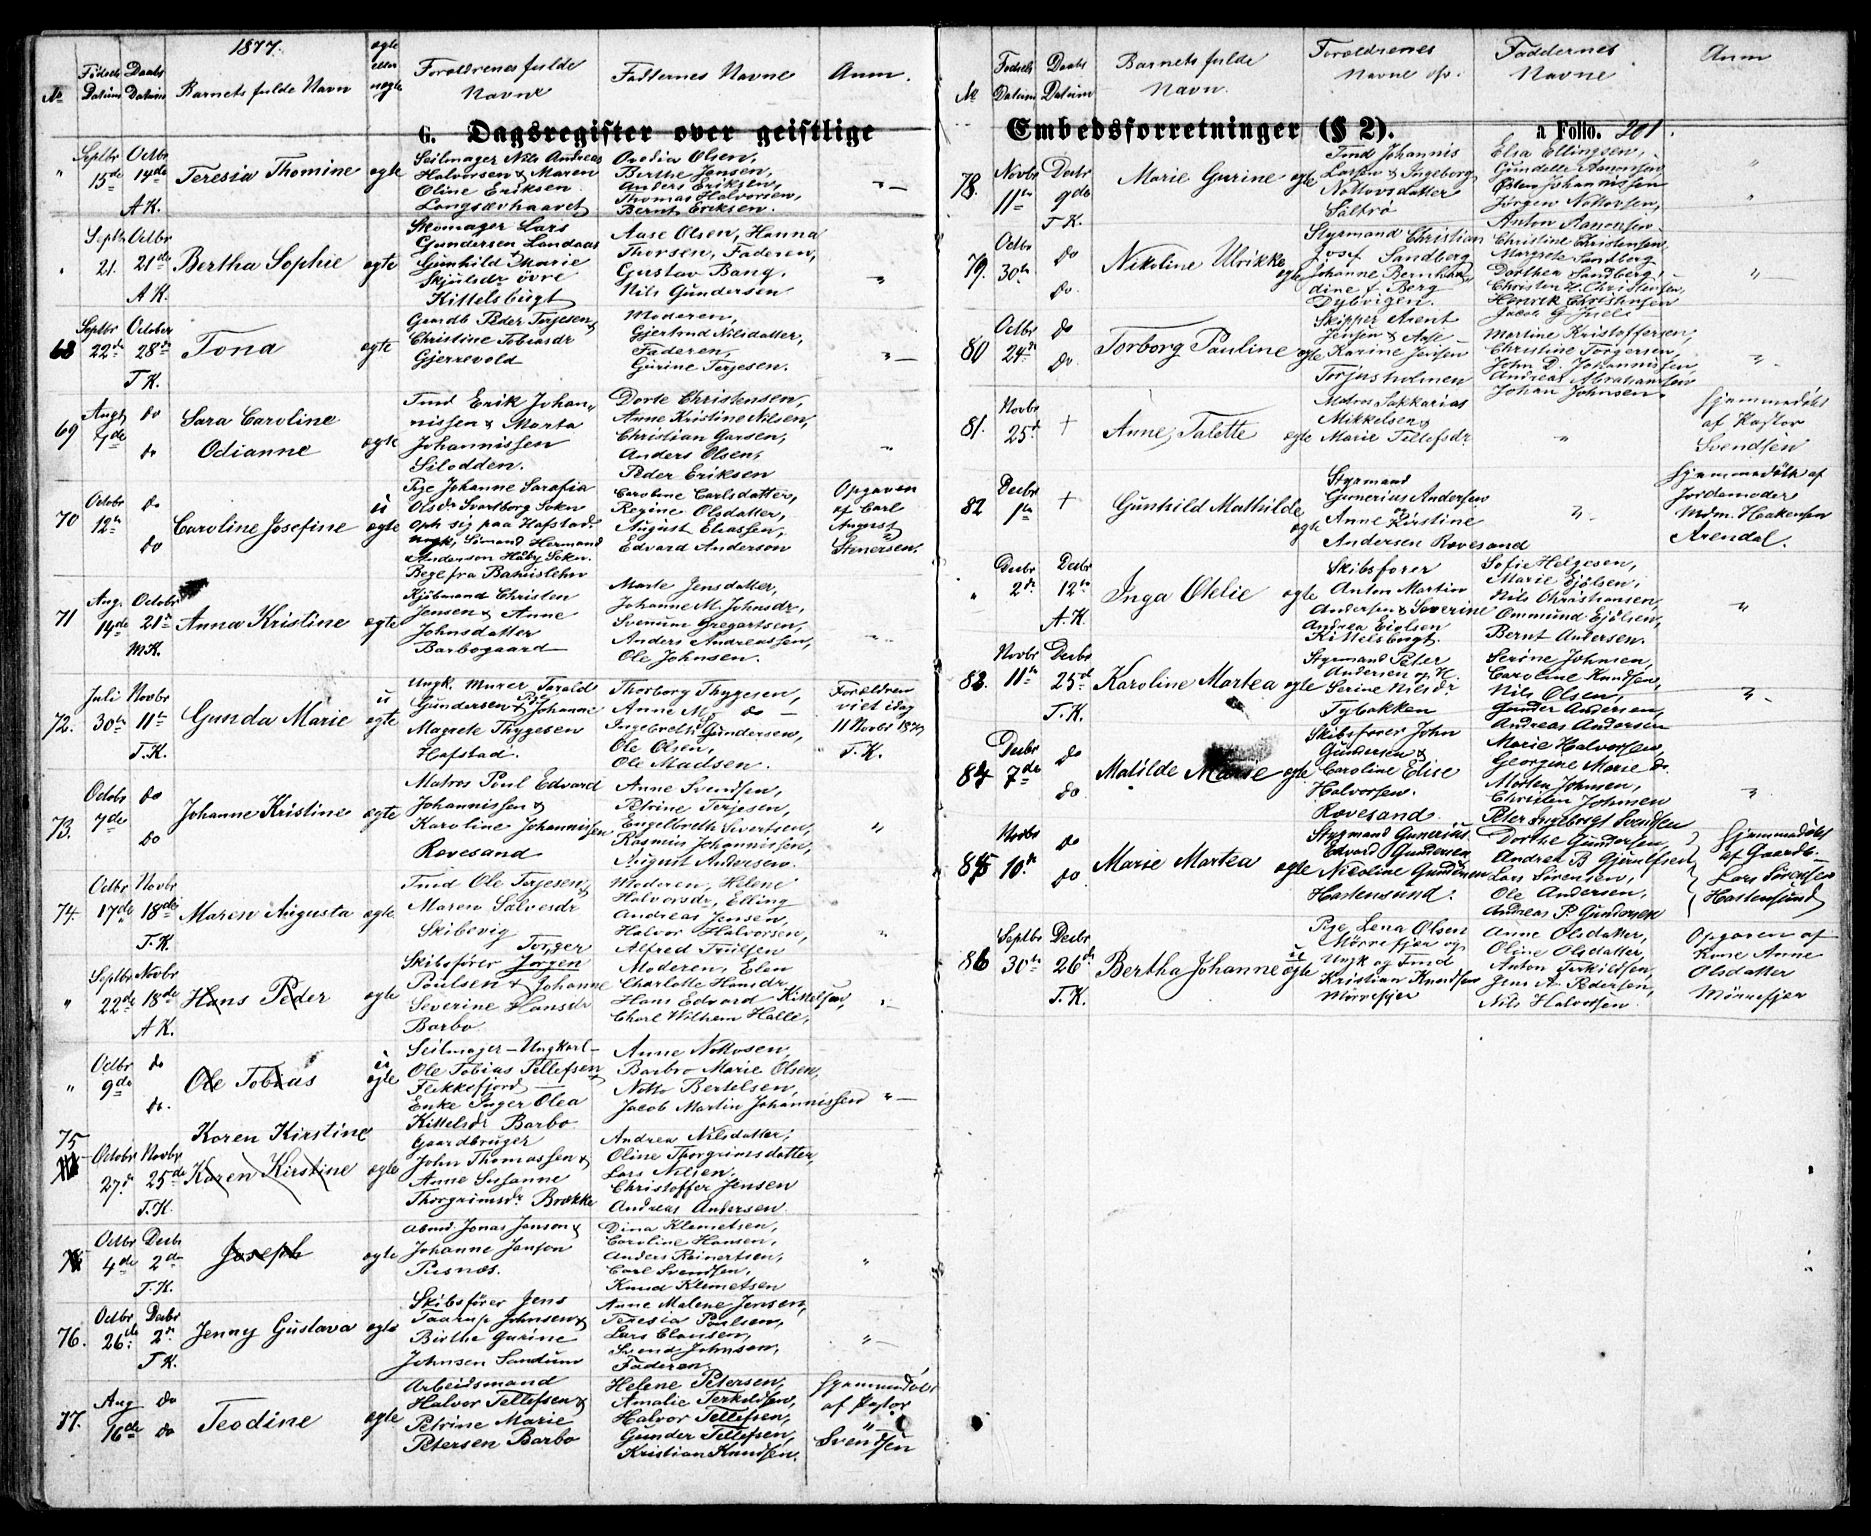 1877.
№
Fødsels Datum
Daabs Datum
Barnets fulde Navn
ægte eller uægte
Forældrenes fulde Navne
Faddernes Navne
Anm.
G. Dagsregister over geistlige
Septbr 15de
Octbr 14de
A K.
Teresia Thomine
ægte
Seilmager Nils Andreas
Halvorsen & Maren
Oline Eriksen
Langsævhaavet
Berthe Jensen,
Anders Eriksen,
Thomas Halvorsen,
Bernt Eriksen.
Septb 21.
Octbr 21de
A K.
Bertha Sophie
ægte
Skomager Lars
Gundersen Landaas
Gunhild Marie
Skjulsdr øvre
Kittelsbugt
Aase Olsen, Hanna
Thorsen, Faderen,
Gustav Bang,
Nils Gundersen
68
Septbr 22de
October 28de
T K.
Tona
ægte
Gaardb Peder Terjesen &
Christine Tobiasdr
Gjerrevold
Moderen,
Gjertrud Nilsdatter,
Faderen,
Gurine Terjesen.
69
Augt 7de
do
do
Sara Caroline
Odianne
ægte
Tmd Erik Johan-
nissen & Marta
Johannissen
Silodden.
Dorte Christensen,
Anne Kristine Nilsen,
Christian Garsen,
Anders Olsen,
Peder Eriksen
70
Octobr 12te
do
do
Caroline Josefine
u ægte
Pige Johanne Sarafia
Olsdr Svartborg Sokn
oph sig paa Hafstad
ungk. Sömand Hermand
Anderson Håby Sokn.
Bege fra Bahuslehn
Caroline Carlsdatter,
Regine Olsdatter,
August Eliassen,
Edvard Anderson
Opgaven
af Carl
August
Stenersen.
71
Aug. 14de
Octobr 21de
M K.
Anna Kristine
ægte
Kjøbmand Christen
Jensen & Anne
Johnsdatter
Barbogaard
Marte Jensdatter,
Johanne M. Johnsdr,
Svenum Gregertsen,
Anders Andreassen,
Ole Johnsen.
72.
Juli 30te
Novbr 11te
T. K.
Gunda Marie
u ægte
Ungk. Murer Torald
Gundersen & Pige Johanne
Magrete Thygesen
Hafstad.
Thorborg Thygesen,
Anne M. do
Ingebreth Gundersen,
Ole Olsen,
Ole Madsen.
Forældren
viet idag
11 Novbr 1877
T. K.
73.
Octobr 7de
do
do
Johanne Kristine
ægte
Matros Poul Edvard
Johannissen &
Karoline Johannissen
Rævesand
Anne Svendsen,
Petrine Terjesen,
Engelbreth Sivertsen,
Rasmus Johannissen,
August Andersen.
74.
Octbr 17de
Novbr 18de
T. K.
Maren Augusta
ægte
Tmd Ole Terjesen &
Maren Salvesdr
Skibevig
Moderen, Helene
Halvorsdr, Elling
Andreas Jensen,
Halvor Halvorsen,
Alfred Truelsen
Septbr 22de
Novbr 18de
A K.
Hans Peder
ægte
Torger
Skibsfører Jørgen
Poulsen & Johanne
Severine Hansdr
Barbo
Moderen, Elen
Charlotte Hansdr,
Hans Edvard Kittelsen,
Charl Wilhem Halle,
Octbr 9de
do
do.
Ole Tobias
u ægte
Seilmager - Ungkarl -
Ole Tobias Tellefsen
Flekkefjord
Enke Inger Olea
Kittelsdr Barbo
Anne Nottosen,
Barbro Marie Olsen,
Notto Bertelsen,
Jacob Martin Johannissen
75
Octobr 27de
Novbr 25de
T. K.
Karen Kirstine
Karen Kirstine
ægte
Gaardbruger
John Thomassen &
Anne Susanne
Thorgrimsdr Brække
Andrea Nilsdatter,
Oline Thorgrimsdatter,
Lars Nilsen,
Christoffer Jensen
Andreas Andersen
Octbr 4de
Decbr 2de
T. K.
Joseph
ægte
Jonas Janson &
Johanne Janson
Pusnæs.
Dina Klemetsen,
Caroline Hansen,
Anders Reinertsen,
Carl Svendsen,
Knud Klemetsen
76.
Octbr 26de
Decbr 2de
T K.
Jenny Gustava
ægte
Skibsfører Jens
Taarup Johnsen &
Birthe Gurine
Johnsen Sandum
Anne Malene Jensen,
Teresia Poulsen,
Lars Clausen,
Svend Johnson,
Faderen,
77.
Aug 16de
do
do
Teodine
ægte
Arbeidsmand
Halvor Tellefsen &
Petrine Marie
Petersen Barbo
Helene Petersen,
Amalie Terkildsen,
Halvor Tellefsen,
Gunder Tellefsen,
Kristian Knudsen.
Hjemmedøbt
af Pastor
Svendsen
№
Fødsels Datum
Daabs Datum
Barnets fulde Navn.
Forældrenes Navne
Faddernes Navne
Anm
Embedsforretninger (§ 2).
a Folio. 201.
78.
Novbr 11te
Decbr 9de
T K.
Marie Gurine
ægte
Tmd Johannis
Larsen & Ingeborg
Nottovsdatter
Saltrø
Elsa Ellingsen,
Gundelle Aanonsen,
Østen Johannissen
Jørgen Nottovsen,
Anton Aanonsen
79.
Octbr 30te
do
do.
Nikoline Ulrikke
ægte
Styrmand Christian
Josef Sandberg
Johanne Bernhar-
dine f. Berg
Dybvigen.
Christine Christensen,
Margrete Sandberg
Dorthea Sandberg,
Christen H. Christensen,
Henrik Christensen
80
Octbr 24de
do
do.
Torborg Pauline
ægte
Skipper Arent
Jensen & Aase
Karine Jensen
Torjusholmen
Martine Kristoffersen,
Christine Torgersen,
John D. Johannissen
Andreas Abrahamsen
Johan Johnsen.
81.
Novbr 25de
+
Anne Talette
ægte
Matros Sakkarias
Mikkelsen &
Marie Tellefsdr
Hjemmedøbt
af Pastor
Svendsen
82
Decbr 1te
+
Gunhild Mathilde
ægte
Styrmand
Gunerius Andersen
og
Anne Kirstine
Andersen Rævesand
Hjemmedøbt af
Jordamoder
Mdm. Haakensen
Arendal.
Decbr 2de
Decbr 12te
A. K.
Inga Otelie
ægte
Skibsfører
Anton Martin
Andersen & Severine
Andrea Eiolsen
Kittelsbugt.
Sofie Helgesen,
Marie Ejølsen,
Nils Christiansen,
Ommund Ejølsen,
Bernt Andersen.
83.
Novbr 11te
Decbr 25de
T. K.
Karoline Martea
ægte
Styrmand Peter
Andersen og H.
Serine Nielsdr
Tybakken
Serine Johnsen,
Caroline Knudsen,
Nils Olsen,
Gunder Andersen,
Andreas Andersen
84
Decbr 7de
do
do
Matilde Marie
ægte
Skibsfører John
Gundersen &
Caroline Elise
Halvorsen.
Rævesand.
Marie Halvorsen,
Georgine Marie do
Morten Johnsen,
Christen Johnsen
Peter Ingeborgs Svendsen
85
Novbr 10de
do
do
Marie Martea
ægte
Styrmand Gunerius
Edvard Gundersen
Nicoline Gundersen
Hastensund.
Dorthe Gundersen,
Andrea B Gjerulfsen
Lars Sørensen,
Ole Andersen,
Andreas P. Gundersen
Hjemmedøbt
af Gaardb.
Lars Sørensen
Hastensund
86
Septbr 30te
Decbr 26de
T. K.
Bertha Johanne
u ægte
Pige Lena Olsen
Mørrefjær og
Ungk og Tmd
Kristian Knudsen
Mørrefjær
Anne Olsdatter,
Oline Olsdatter,
Anton Terkildsen,
Jens A. Pedersen,
Nils Halvorsen.
Opgaven af
Kone Anne
Olsdatter
Mørrefjær